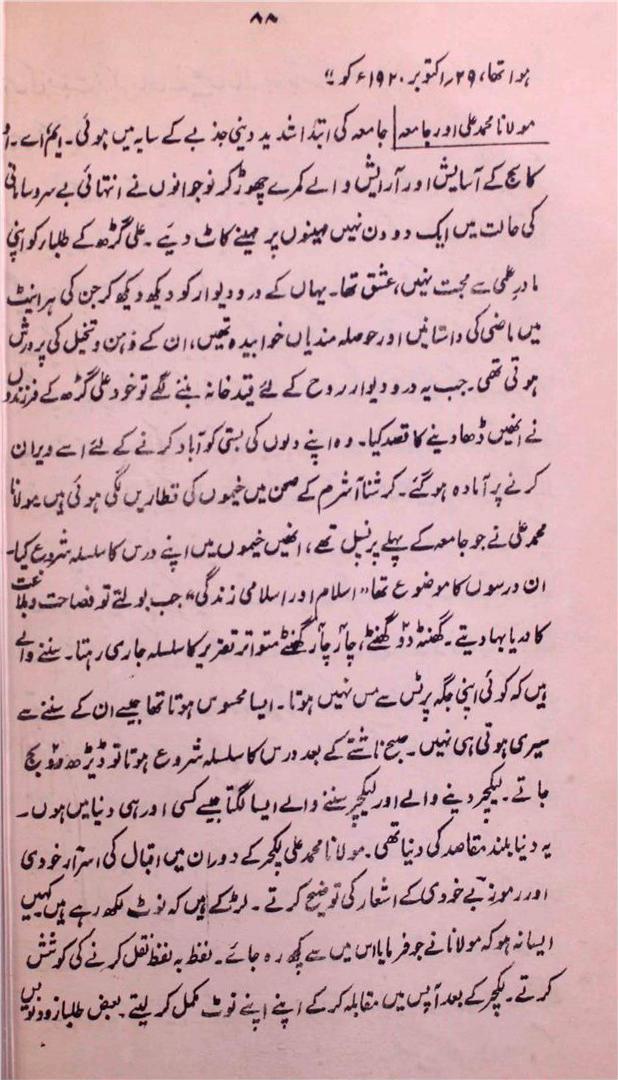 ۸۸
ہوا تھا، ۲۹؍ اکتوبر ۱۹۲۰ء کو ؛؛
مولانا محمد علی اور جامعہ جامعہ کی ابتدا شدید دینی جذبے کے سایہ میں ہوئی۔ ایم۔ اے۔ او
کالج کے آسایش اور آرایش والے کمرے چھوڑ کر نوجوانوں نے انتہائی بے سروسامانی
کی حالت میں ایک دو دن نہیں مہینوں پر مہینے کاٹ دیے۔ علی گڑھ کے طلبار کو اپنی
مادر علمی سے محبت نہیں، عشق تھا۔ یہاں کے در و دیوار کو دیکھ دیکھ کر جن کی ہر اینٹ
میں ماضی کی داستانیں اور حوصلہ مندیاں خوابیدہ تھیں، ان کے ذہن و تخیل کی پرورش
ہوتی تھی۔ جب یہ در و دیوار روح کے لئے قیدخانہ بننے لگے تو خود علی گڑھ کے فرزندوں
نے انھیں ڈھا دینے کا قصد کیا۔ وہ اپنے دلوں کی بستی کو آباد کرنے کے لئے اسے ویران
کرنے پر آمادہ ہو گئے۔ کرشنا آشرم کے صحن میں خیموں کی قطاریں لگی ہوئی ہیں۔ مولانا
محمد علی نے جو جامعہ کے پہلے پرنسپل تھے، انھیں خیموں میں اپنے درس کا سلسلہ شروع کیا۔
ان درسوں کا موضوع تھا "اسلام اور اسلامی زندگی" جب بولتے تو فصاحت و بلاغت
کا دریا بہا دیتے۔ گھنٹہ دو گھنٹے، چار چار گھنٹے متواتر تقریر کا سلسلہ جاری رہتا۔ سننے والے
ہیں کہ کوئی اپنی جگہ پر ٹس سے مس نہیں ہوتا۔ ایسا محسوس ہوتا تھا جیسے ان کے سننے سے
سیری ہوتی ہی نہیں۔ صبح ناشتے کے بعد درس کا سلسلہ شروع ہوتا تو ڈیڑھ دو بج
جاتے۔ لیکچر دینے والے اور لیکچر سننے والے ایسا لگتا جیسے کسی اور ہی دنیا میں ہوں۔
یہ دنیا بلند مقاصد کی دنیا تھی۔ مولانا محمد علی لکچر کے دوران میں اقبال کی اسرار خودی
اور رموز بے خودی کے اشعار کی توضیح کرتے۔ لڑکے ہیں کہ نوٹ لکھ رہے ہیں کہیں
ایسا نہ ہو کہ مولانا نے جو فرمایا اس میں سے کچھ رہ جائے۔ لفظ بہ لفظ نقل کرنے کی کوشش
کرتے۔ لکچر کے بعد آپس میں مقابلہ کر کے اپنے اپنے نوٹ مکمل کر لیتے۔ بعض طلبار زود نویس